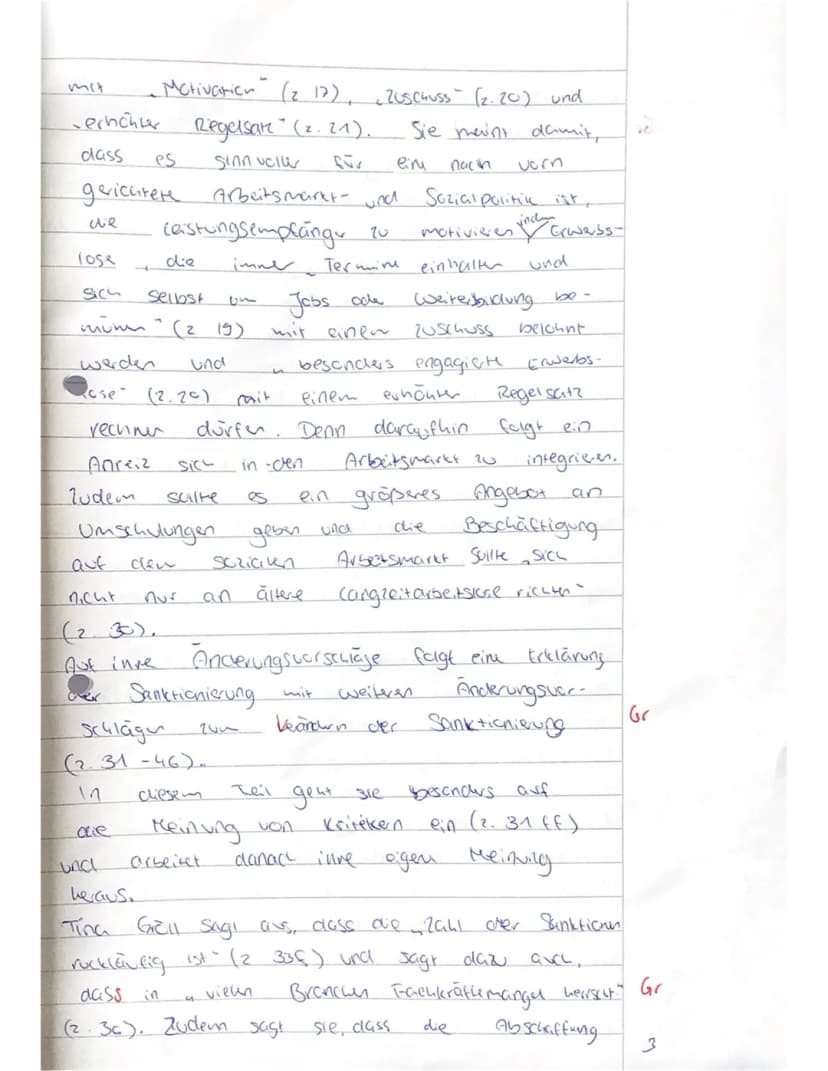 mit „Motivation" (Z 17), „Zuschuss" (Z. 20) und
„erhöhter Regelsatz" (Z. 21). Sie meint damit,
dass es sinnvoller für ein nach vorn
gerichtete Arbeitsmarkt- und Sozialpolitik ist,
die Leistungsempfänger zu motivieren indem Erwerbs-
lose, die immer „Termine einhalten und
sich selbst um Jobs oder Weiterbildung be-
mühen" (Z 19) mit einem Zuschuss belohnt
werden und „besonders engagierte Erwerbs-
lose" (Z. 20) mit einem erhöhten Regelsatz
rechnen dürfen. Denn daraufhin folgt ein
Anreiz sich in den Arbeitsmarkt zu integrieren.
Zudem sollte es ein größeres Angebot an
Umschulungen geben und die Beschäftigung
auf dem sozialen Arbeitsmarkt sollte „sich
nicht nur an ältere Langzeitarbeitslose richten"
(Z. 30).
Auf ihre Änderungsvorschläge folgt eine Erklärung
der Sanktionierung mit weiteren Änderungsvor-
schlägen zum Verändern der Sanktionierung
Gr
(Z. 31-46).
In diesem Teil geht sie besonders auf
die Meinung von Kritikern ein (Z. 31 ff)
und arbeitet danach ihre eigene Meinung
heraus.
Tina Groll sagt aus, dass die „Zahl der Sanktionen
rückläufig ist" (Z 33f) und sagt dazu auch,
dass in „vielen Branchen Fachkräftemangel herrscht"
Gr
(Z. 36). Zudem sagt sie, dass die Abschaffung
3